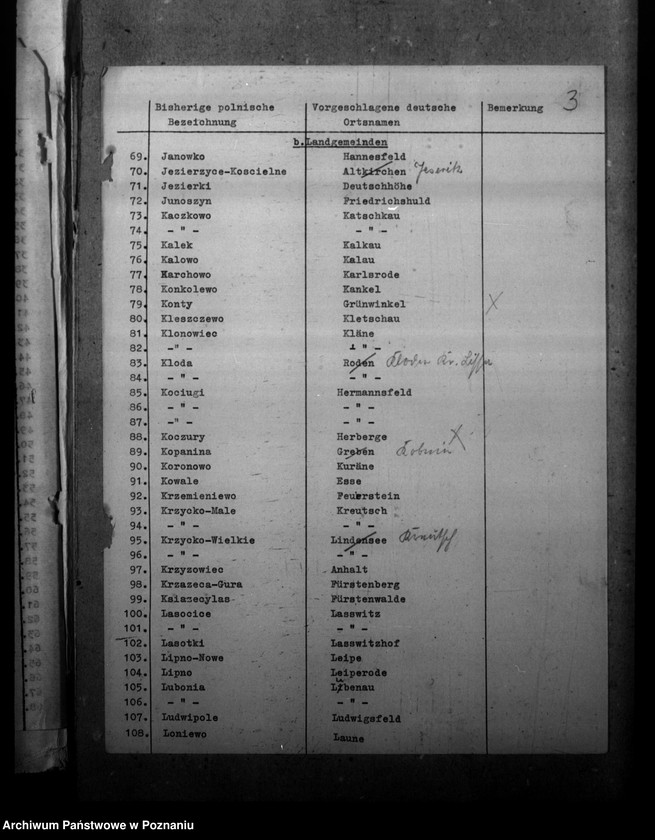 3
Bisherige polnische Bezeichnung Vorgeschlagene deutsche Ortsnamen Bemerkung
b. Landgemeinden
69. Janowko Hannesfeld
70. Jezierzyce-Koscielne Altkirchen Jeseritz
71. Jezierki Deutschhöhe
72. Junoszyn Friedrichshuld
73. Kaczkowo Katschkau
74. - " - - " -
75. Kalek Kalkau
76. Kalowo Kalau
77. Karchowo Karlsrode
78. Konkolewo Kankel
79. Konty Grünwinkel X
80. Kleszczewo Kletschau
81. Klonowiec Kläne
82. -" - - " -
83. Kloda Roden Kloden Kr. Lissa
84. - " - - " -
85. Kociugi Hermannsfeld
86. - " - - " -
87. -" - - " -
88. Koczury Herberge X
89. Kopanina Greben
90. Koronowo Kuräne
91. Kowale Esse
92. Krzemieniewo Feuerstein
93. Krzycko-Male Kreutsch
94. - " - - " -
95. Krzycko-Wielkie Lindensee Kreutsch
96. - " - - " -
97. Krzyzowiec Anhalt
98. Krzazeca-Gura Fürstenberg
99. Ksiazecylas Fürstenwalde
100. Lasocice Lasswitz
101. - " - - " -
102. Lasotki Lasswitzhof
103. Lipno-Nowe Leipe
104. Lipno Leiperode
105. Lubonia Lübenau
106. - " - - " -
107. Ludwipole Ludwigsfeld
108. Loniewo Laune
Archiwum Państwowe w Poznaniu